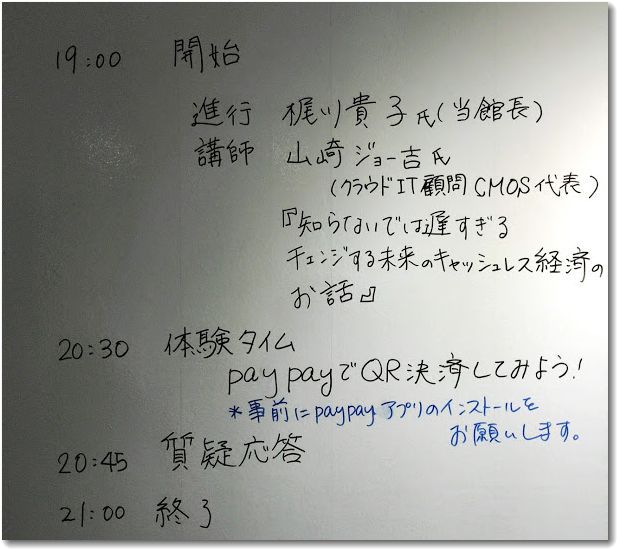 19:00 開始
進行 梶川貴子氏(当館長)
講師 山崎ジョー吉氏
(クラウドIT顧問CMOS代表)
『知らないでは遅すぎる
チェンジする未来のキャッシュレス経済の
お話』
20:30 体験タイム
paypayでQR決済してみよう!
*事前にpaypayアプリのインストールを
お願いします。
20:45 質疑応答
21:00 終了